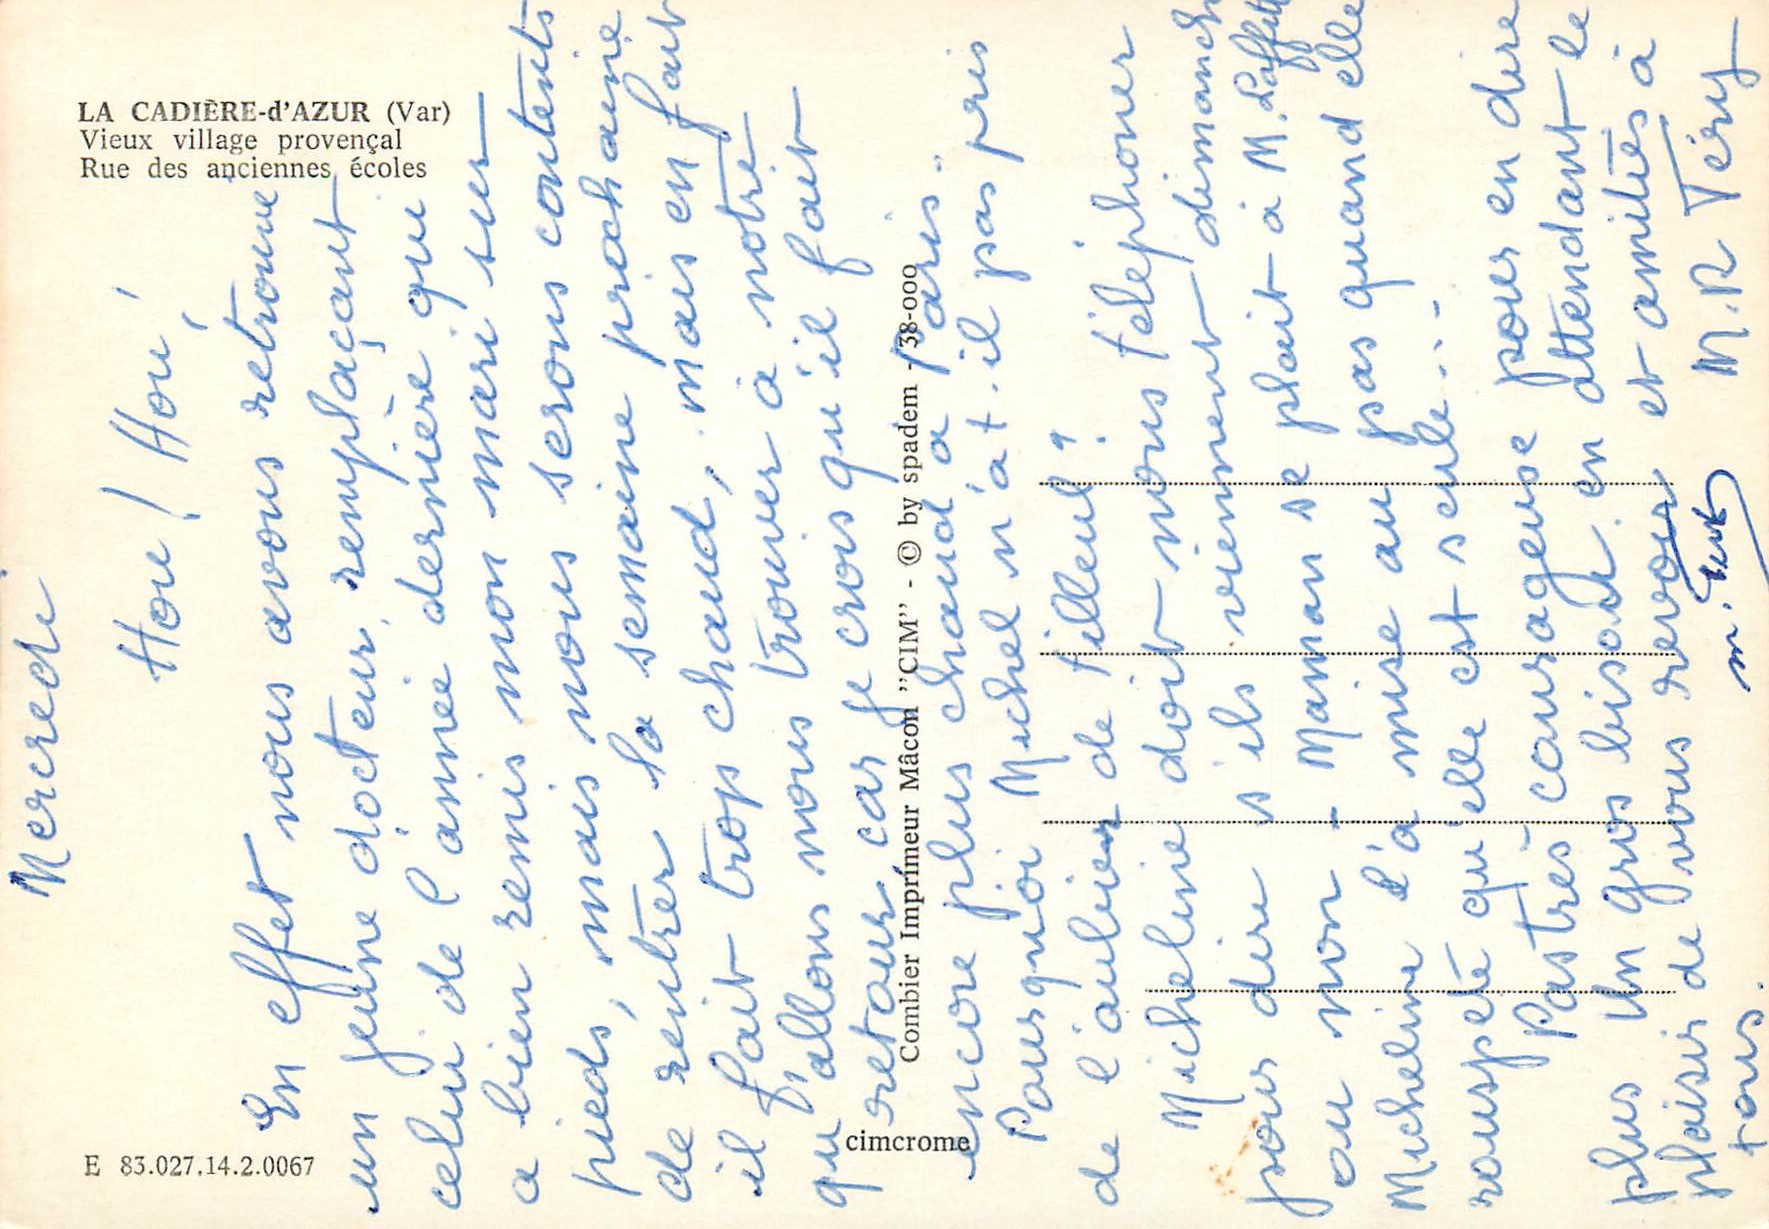 LA CADIÈRE-d'AZUR (Var)
Vieux village provençal
Rue des anciennes écoles
E 83.027.14.2.0067
cimcrome
Combier Imprimeur Mâcon "CIM" - © by spadem - 38-000
Mercredi
Hou! Hou!
En effet nous avons retrouvé
un jeune docteur, remplaçant
celui de l'année dernière qui
a bien remis mon mari sur
pieds, mais nous serons contents
de rentrer la semaine prochaine
il fait trop chaud, mais en fait
qu'allons nous trouver à notre
retour car je crois qu'il fait
encore plus chaud à Paris.
Pourquoi Michel n'a t-il pas pris
de l'aubier de tilleul?
Micheline doit nous téléphoner
pour dire s'ils viennent dimanche
ou non - Maman se plait à M. Laffitte
Micheline l'a mise au pas quand elle
rouspété qu'elle est seule...
Pas très courageuse pour en dire
plus Un gros bisou en attendant le
plaisir de vous revoir et amitiés à
tous.
M.R Téry